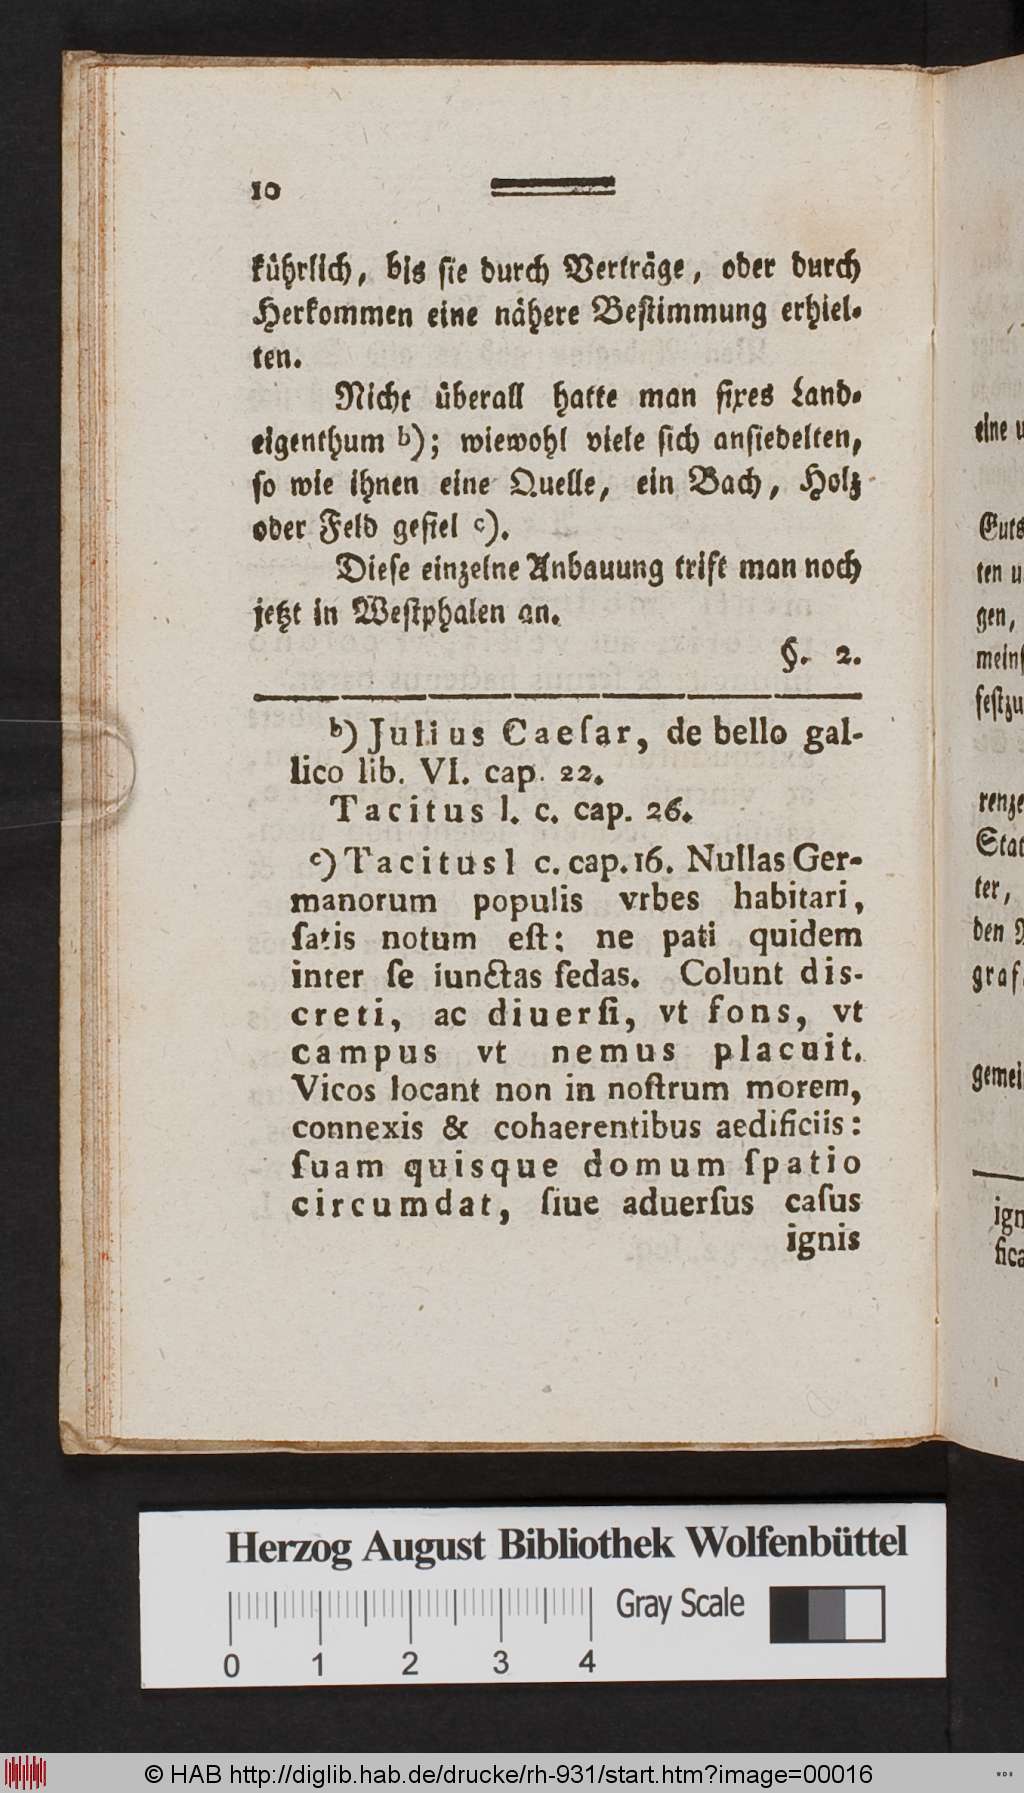 10
kührlich, bis sie durch Verträge, oder durch
Herkommen eine nähere Bestimmung erhiel-
ten.
Nicht überall hatte man fixes Land-
eigenthum b); wiewohl viele sich ansiedelten,
so wie ihnen eine Quelle, ein Bach, Holz
oder Feld gefiel c).
Diese einzelne Anbauung trift man noch
jetzt in Westphalen an.
§. 2.
b) Julius Caeſar, de bello gal-
lico lib. VI. cap. 22.
Tacitus l. c. cap. 26.
c) Tacitus l c. cap. 16. Nullas Ger-
manorum populis vrbes habitari,
ſatis notum eſt: ne pati quidem
inter ſe iunctas ſedas. Colunt dis-
creti, ac diuerſi, vt fons, vt
campus vt nemus placuit.
Vicos locant non in noſtrum morem,
connexis & cohaerentibus aedificiis:
ſuam quisque domum ſpatio
circumdat, ſiue aduerſus caſus
ignis
eine u
Guts
ten u
gen,
mein
feſtzu
renze
Stat
ter,
den
graf
gemei
ign
fica
Herzog August Bibliothek Wolfenbüttel
Gray Scale
0 1 2 3 4
© HAB http://diglib.hab.de/drucke/rh-931/start.htm?image=00016